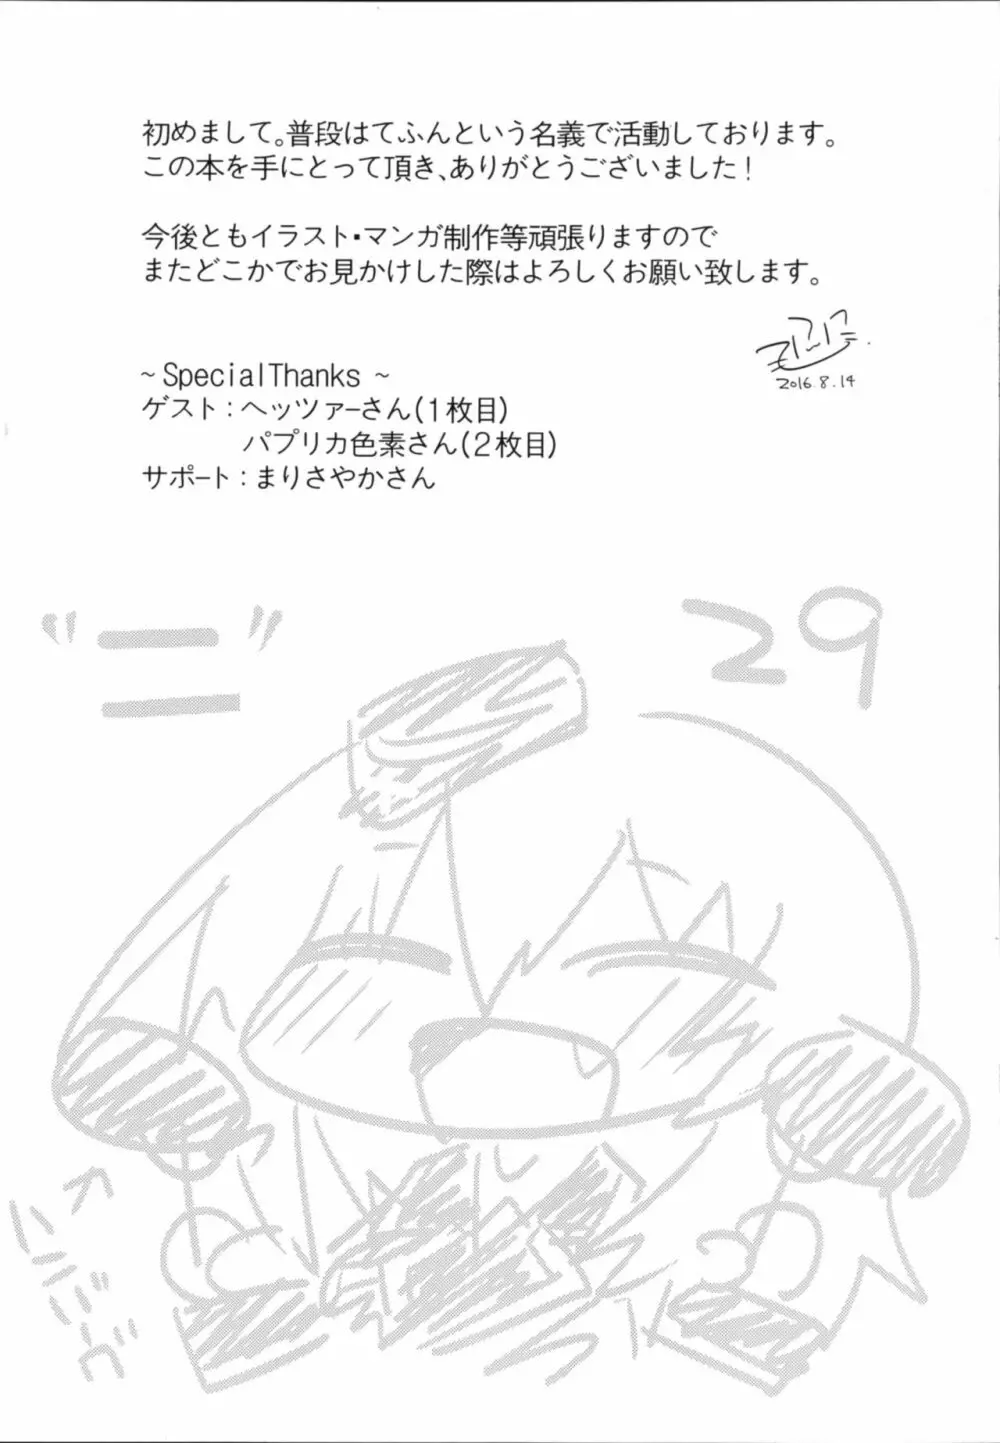 初めまして。普段はてふんという名義で活動しております。
この本を手にとって頂き、ありがとうございました！
今後ともイラスト・マンガ制作等頑張りますので
またどこかでお見かけした際はよろしくお願い致します。
2016.8.14
～SpecialThanks～
ゲスト：ヘッツァーさん(1枚目)
パプリカ色素さん(2枚目)
サポート：まりさやかさん
29